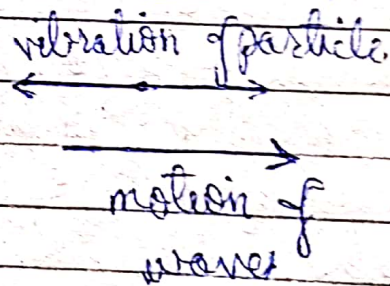 vibration of particle.
motion of
waves